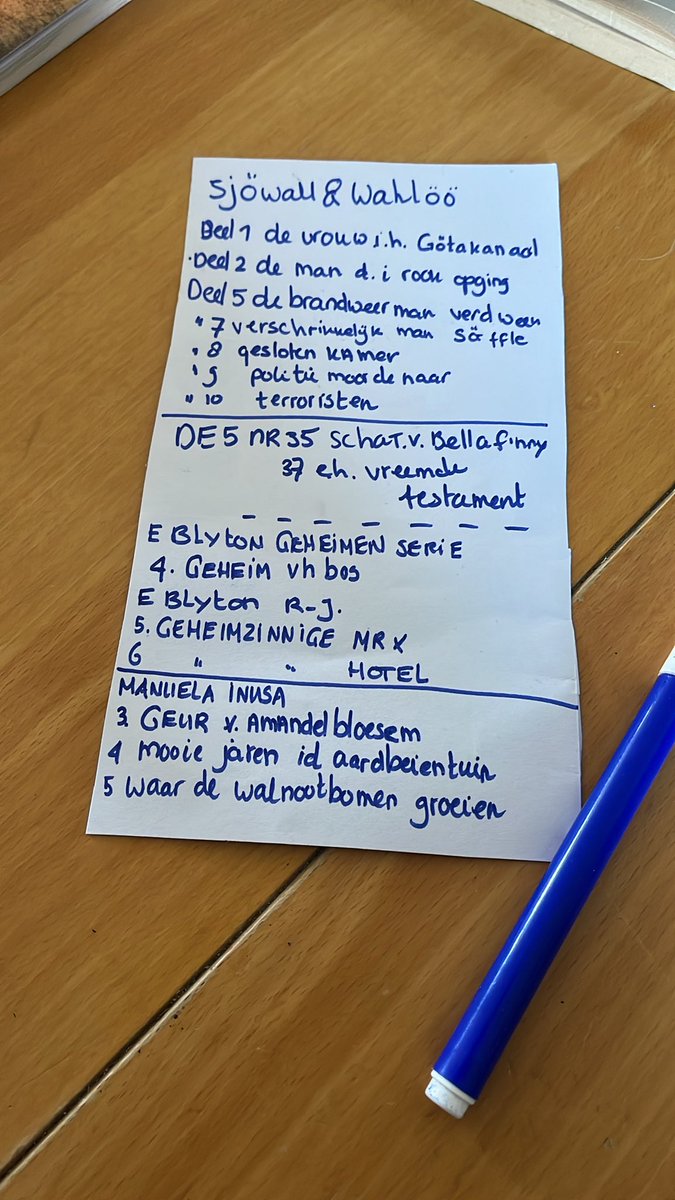 Sjöwall & Wahlöö
Deel 1 de vrouw i.h. Götakanaal
Deel 2 de man d. i rook opging
Deel 5 de brandweerman verdween
" 7 verschrikkelijk man Säffle
" 8 gesloten KAmer
" 9 politie moordenaar
" 10 terroristen
DE 5 NR 35 Schat. v. Bellafinny
37 e.h. vreemde
testament
E BLyton GEHEIMEN SERIE
4. GEHEIM vh bos
E BLyton R-J.
5. GEHEIMZINNIGE MR X
6 " " HOTEL
MANUELA INUSA
3. GEUR v. AMANdelbloesem
4 mooie jaren id aardbeientuin
5 waar de walnootbomen groeien